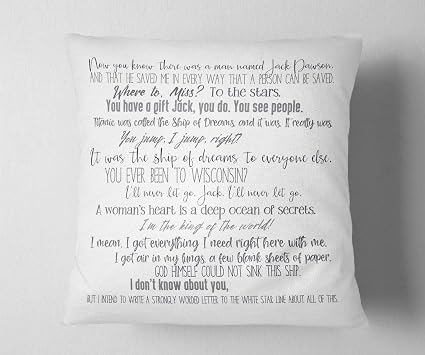 Now you know there was a man named Jack Dawson,
AND THAT HE SAVED ME IN EVERY WAY THAT A PERSON CAN BE SAVED.
Where to, Miss? To the stars.
You have a gift Jack, you do. You see people.
Titanic was called the Ship of Dreams, and it was. It really was.
You jump, I jump, right?
It was the ship of dreams to everyone else.
YOU EVER BEEN TO WISCONSIN?
I'll never let go, Jack. I'll never let go.
A woman's heart is a deep ocean of secrets.
I'm the king of the world!
I mean, I got everything I need right here with me.
I got air in my lungs, a few blank sheets of paper.
GOD HIMSELF COULD NOT SINK THIS SHIP.
I don't know about you,
BUT I INTEND TO WRITE A STRONGLY WORDED LETTER TO THE WHITE STAR LINE ABOUT ALL OF THIS.